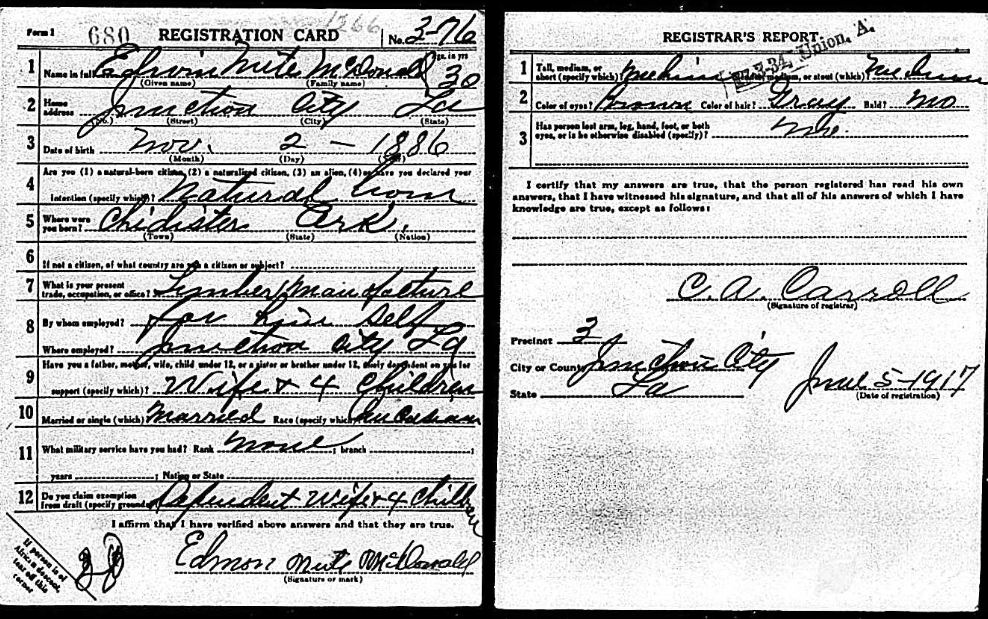 1366
Form 1 680 REGISTRATION CARD No. 3-76
1 Name in full Edwin Mute McDonald Age, in yrs 30
(Given name) (Family name)
2 Home address Junction City La
(No.) (Street) (City) (State)
3 Date of birth Nov. 2 - 1886
(Month) (Day) (Year)
Are you (1) a natural-born citizen, (2) a naturalized citizen, (3) an alien, (4) or have you declared your
4 intention (specify which)? Natural born
5 Where were you born? Chidister Ark.
(Town) (State) (Nation)
6 If not a citizen, of what country are you a citizen or subject?
7 What is your present trade, occupation, or office? Timber Manufacture
8 By whom employed? for him self
Where employed? Junction City La
Have you a father, mother, wife, child under 12, or a sister or brother under 12, solely dependent on you for
9 support (specify which)? Wife & 4 Children
10 Married or single (which) Married Race (specify which) Caucasian
11 What military service have you had? Rank none ; branch ;
years ; Nation or State
12 Do you claim exemption from draft (specify grounds)? Dependent Wife & 4 Children
I affirm that I have verified above answers and that they are true.
If person is of African descent, tear off this corner
Edmon Mute McDonald
(Signature or mark)
REGISTRAR'S REPORT
Union, A.
1 Tall, medium, or short (specify which)? Medium Slender, medium, or stout (which)? Medium
2 Color of eyes? Brown Color of hair? Gray Bald? No
3 Has person lost arm, leg, hand, foot, or both eyes, or is he otherwise disabled (specify)? No.
I certify that my answers are true, that the person registered has read his own
answers, that I have witnessed his signature, and that all of his answers of which I have
knowledge are true, except as follows:
C. A. Carroll
(Signature of registrar)
Precinct 3
City or County Junction City
State La
June 5-1917
(Date of registration)